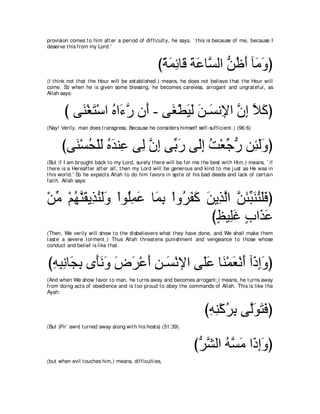 provision comes to him after a period of difficulty, he says, `this is because of me, because I
deserve this from my Lord.'
(وَمَآ أَظُنُّ السَّاعَةَ قَائِمَةً)
(I think not that the Hour will be established.) means, he does not believe that the Hour will
come. So when he is given some blessing, he becomes careless, arrogant and ungrateful, as
Allah says:
(كَلاَّ إِنَّ الإِنسَـنَ لَيَطْغَى - أَن رَّءَاهُ اسْتَغْنَى )
(Nay! Verily, man does transgress. Because he considers himself self-sufficient.) (96:6)
(وَلَئِن رُّجِّعْتُ إِلَى رَبِّى إِنَّ لِى عِندَهُ لَلْحُسْنَى)
(But if I am brought back to my Lord, surely there will be for me the best with Him.) means, `if
there is a Hereafter after all, then my Lord will be generous and kind to me just as He was in
this world.' So he expects Allah to do him favors in spite of his bad deeds and lack of certain
faith. Allah says:
(فَلَنُنَبِّئَنَّ الَّذِينَ كَفَرُواْ بِمَا عَمِلُواْ وَلَنُذِيقَنَّهُمْ مِّنْ
عَذَابٍ غَلِيظٍ)
(Then, We verily will show to the disbelievers what they have done, and We shall make them
taste a severe torment.) Thus Allah threatens punishment and vengeance to those whose
conduct and belief is like that.
(وَإِذَآ أَنْعَمْنَا عَلَى الإِنْسَـنِ أَعْرَضَ وَنَأَى بِجَانِبِهِ)
(And when We show favor to man, he turns away and becomes arrogant;) means, he turns away
from doing acts of obedience and is too proud to obey the commands of Allah. This is like the
Ayah:
(فَتَوَلَّى بِرُكْنِهِ)
(But )Fir`awn( turned away along with his hosts) (51:39).
(وَإِذَا مَسَّهُ الشَّرُّ)
(but when evil touches him,) means, difficulties,